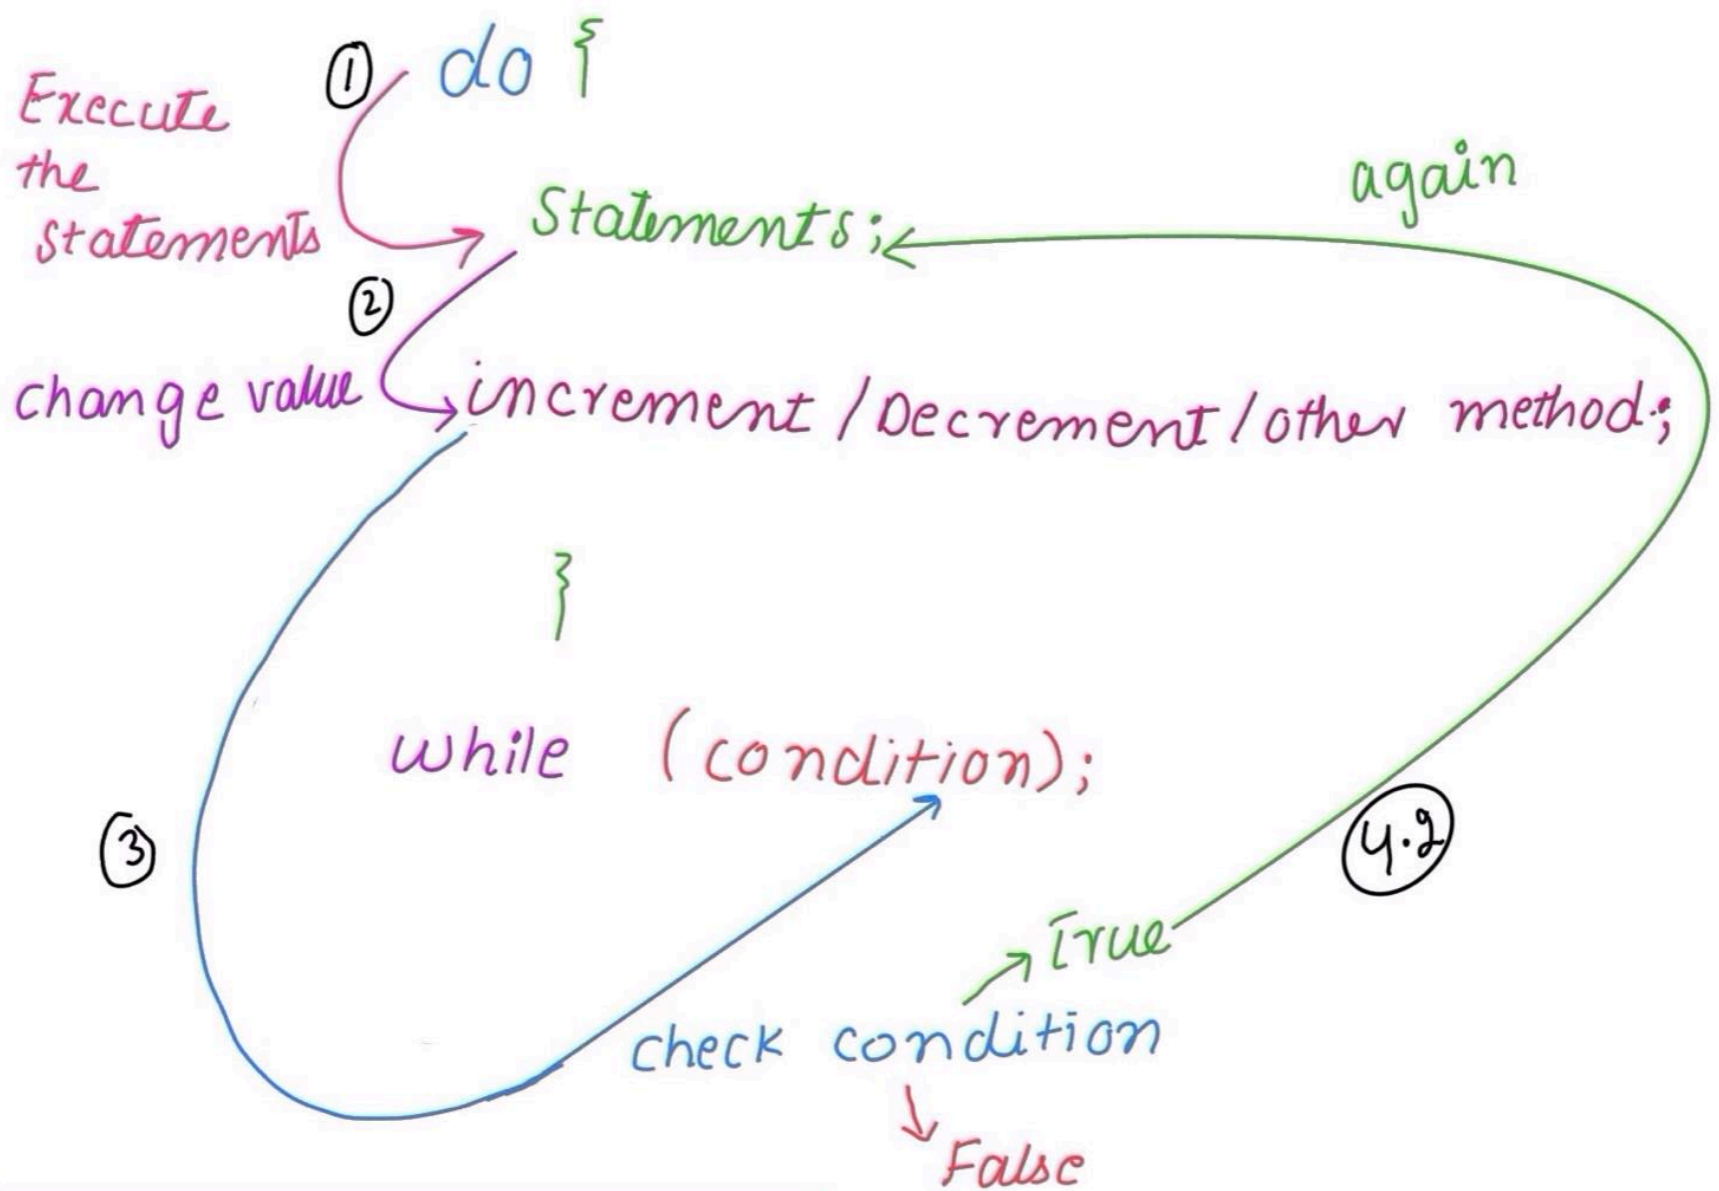 ① do {
Execute
the
statements
again
Statements;
②
change value
increment / Decrement / other method;
}
while (condition);
③
4.2
True
check condition
False